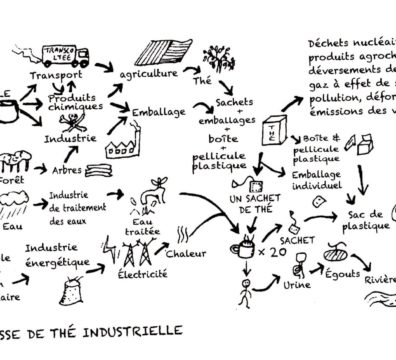 TRANSCO
LTÉE
Transport
LE
Produits
chimiques
Industrie
agriculture
Thé
Emballage
Sachets
+
emballages
+
boîte
+
pellicule
plastique
Déchets nucléair
produits agroch
déversements de
gaz à effet de s
pollution, défor
émissions des v
THÉ
Boîte &
pellicule
plastique
Emballage
individuel
Forêt
Arbres
Industrie
de traitement
des eaux
Eau
Eau
traitée
UN SACHET
DE THÉ
Sac de
plastique
SACHET
× 20
le
n
aire
Industrie
énergétique
Électricité
Chaleur
Urine
Égouts
Rivière
SSE DE THÉ INDUSTRIELLE